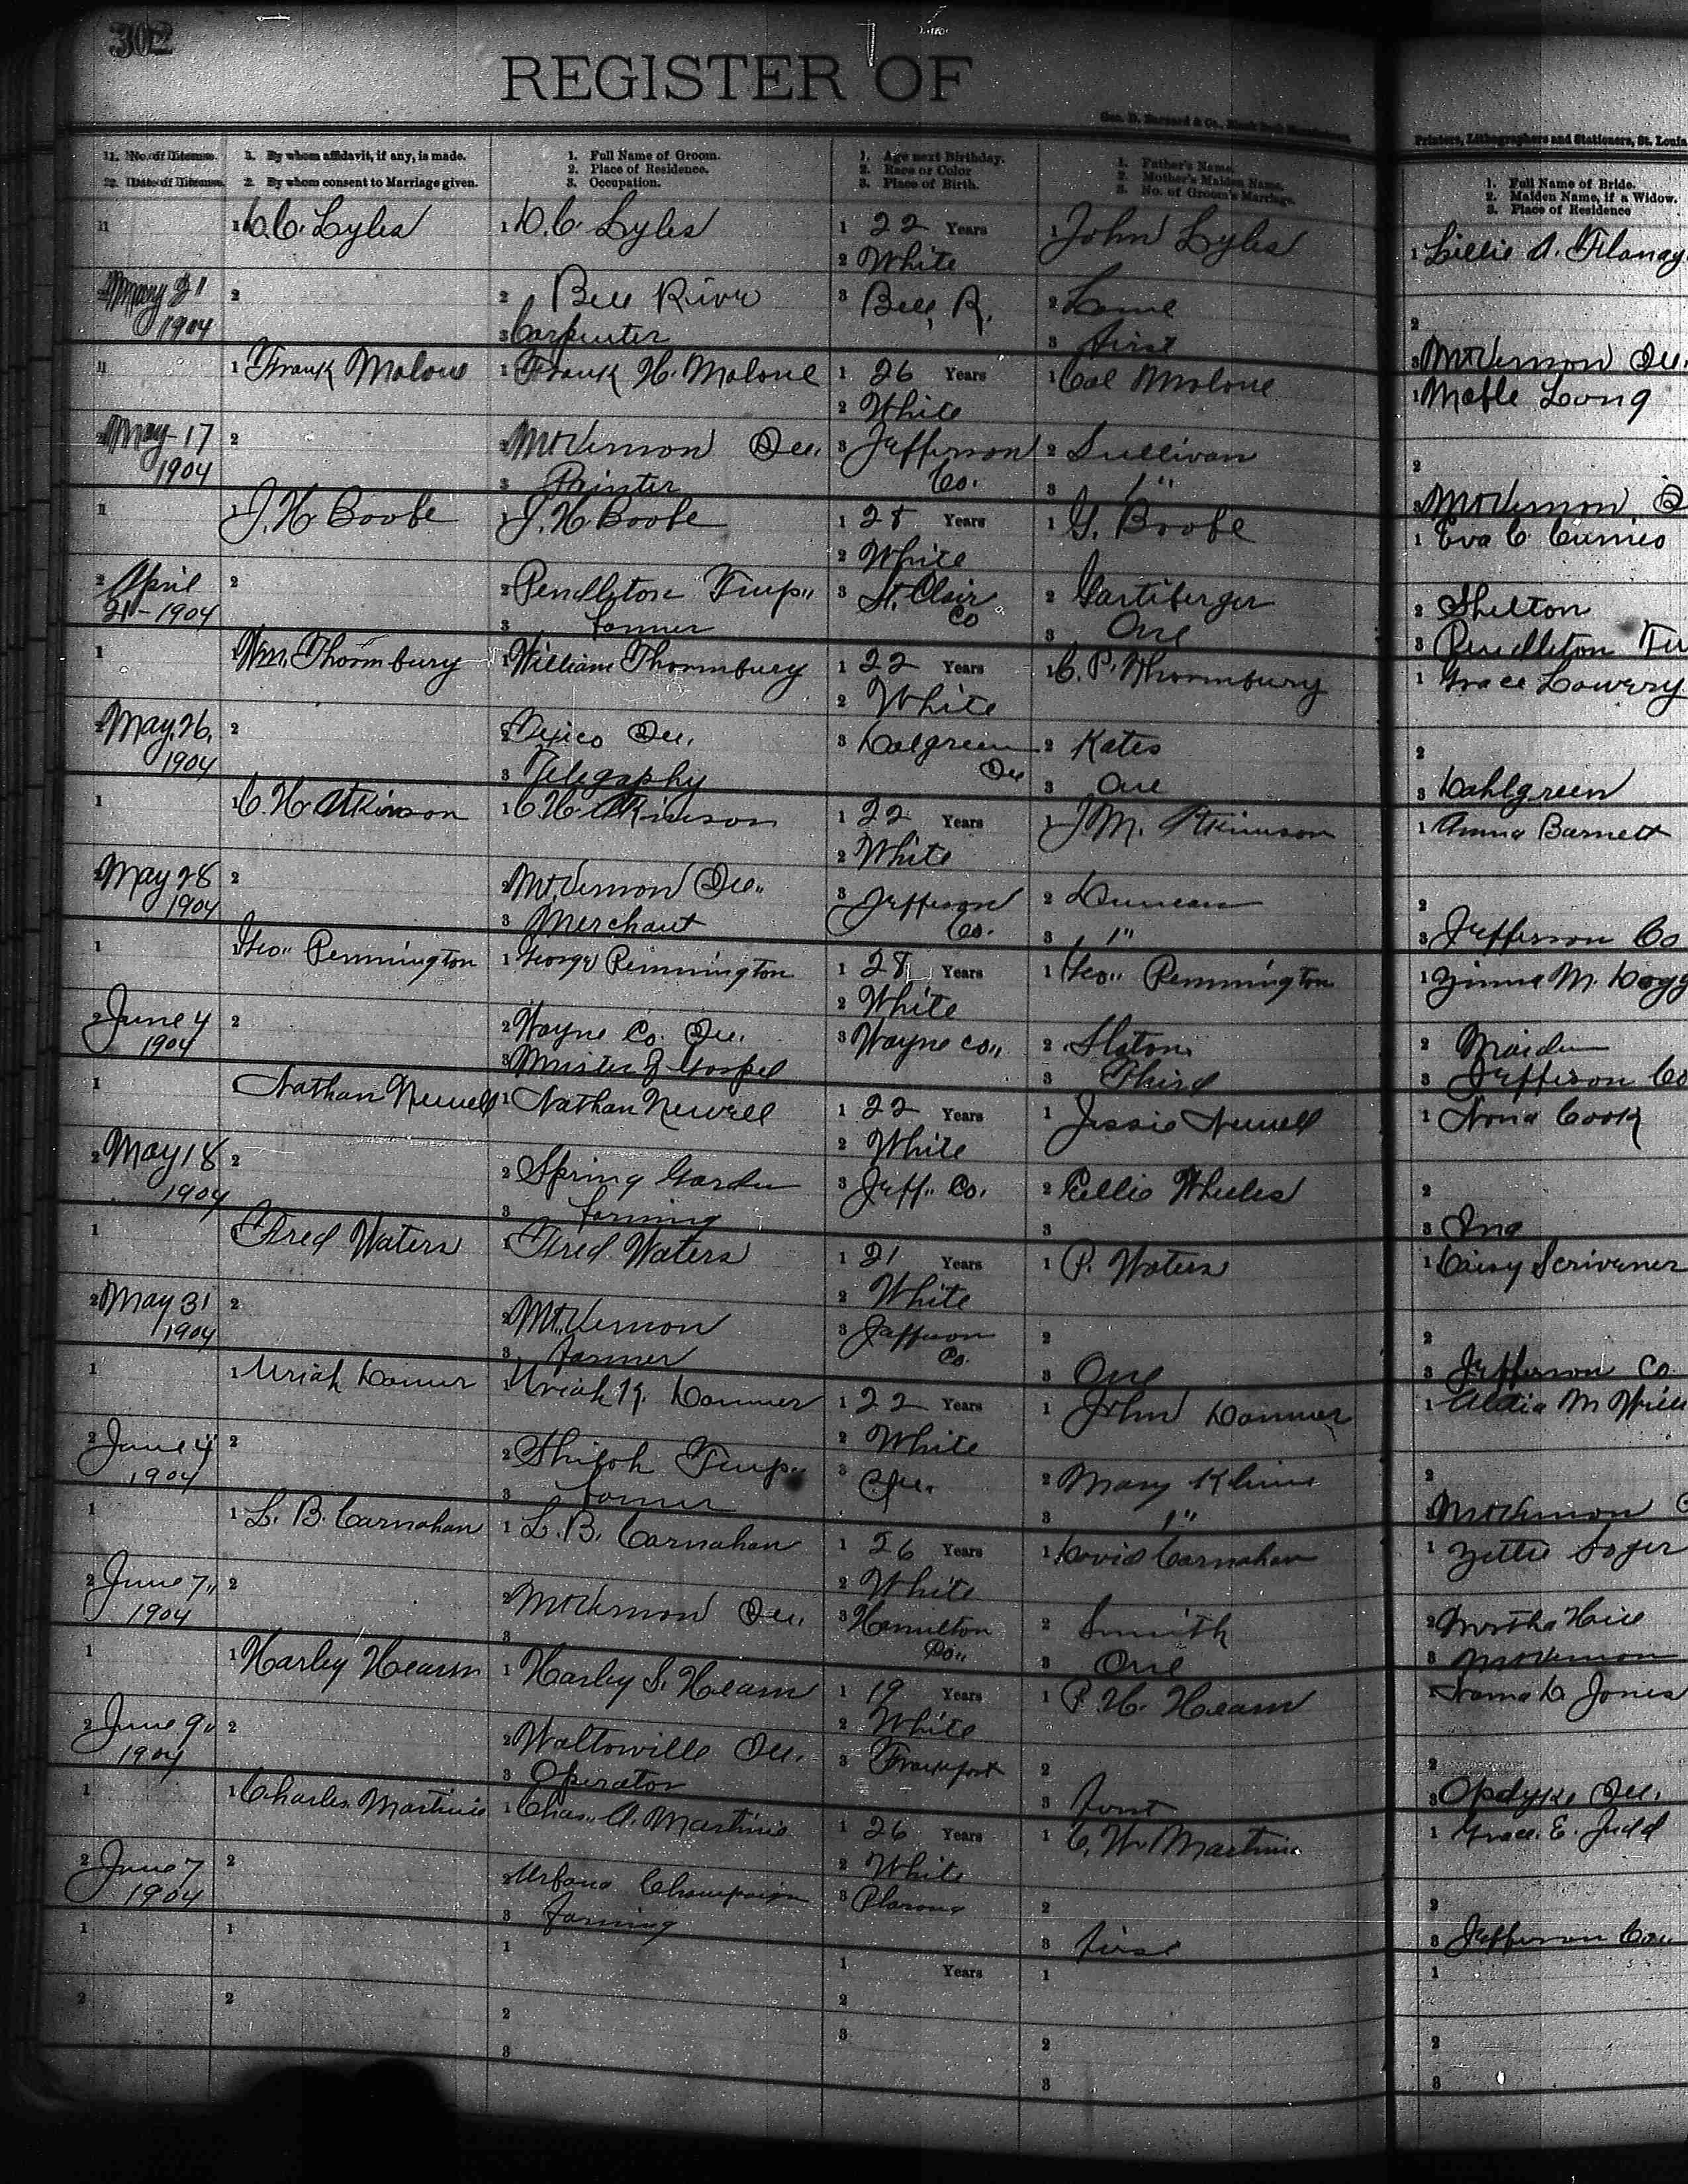 302
REGISTER OF
Geo. D. Barnard & Co., Blank Book Manufacturers,
Printers, Lithographers and Stationers, St. Louis
1. No. of License.
2. Date of License.
1. By whom affidavit, if any, is made.
2. By whom consent to Marriage given.
1. Full Name of Groom.
2. Place of Residence.
3. Occupation.
1. Age next Birthday.
2. Race or Color
3. Place of Birth.
1. Father's Name.
2. Mother's Maiden Name.
3. No. of Groom's Marriage.
1. Full Name of Bride.
2. Maiden Name, if a Widow.
3. Place of Residence
1 1 D. C. Lyles 1 D. C. Lyles 1 22 Years 1 John Lyles 1 Lillie A. Flanag
2 White
2 May 21 1904 2 2 Bell River 3 Bell, R. 2 Lane 2
3 Carpenter 3 first 3 Mt Vernon Ill.
1 1 Frank Malone 1 Frank H. Malone 1 26 Years 1 Cal Malone 1 Mable Long
2 White
2 May-17 1904 2 2 Mt Vernon Ill. 3 Jefferson Co. 2 Sullivan 2
3 Painter 3 1" 3 Mt Vernon
1 1 J. H Boobe 1 J. H Boobe 1 28 Years 1 G. Boobe 1 Eva C
2 White
2 April 21-1904 2 2 Pendleton Twp" 3 St. Clair Co 2 2 Shelton
3 farmer 3 One 3 Pendleton
1 1 Wm. Thornbury 1 William Thornbury 1 22 Years 1 C. P. Thornbury 1 Grace Lowery
2 White
2 May. 26. 1904 2 2 Texico Ill. 3 Dalgreen Ill 2 Kates 2
3 Telegraphy 3 One 3 Dahlgreen
1 1 C. H. Atkinson 1 C. H. Atkinson 1 22 Years 1 J M. Atkinson 1 Anna Barnett
2 White
2 May 28 1904 2 2 Mt. Vernon Ill" 3 Jefferson Co. 2 Duncan 2
3 Merchant 3 1" 3 Jefferson Co
1 1 Geo" Pennington 1 George Pennington 1 28 Years 1 Geo" Pennington 1 M.
2 White
2 June 4 1904 2 2 Wayne Co. Ill. 3 Wayne co" 2 Slaton 2 Maiden
3 Minister of Gospel 3 Third 3 Jefferson Co
1 1 Nathan Newell 1 Nathan Newell 1 22 Years 1 Jessie Newell 1 Nona Cook
2 White
2 May 18 1904 2 2 Spring Garden 3 Jeff" Co. 2 2
3 farming 3 3 Ina
1 1 Fred Waters 1 Fred Waters 1 21 Years 1 P. Waters 1 Daisy Scrivener
2 White
2 May 31 1904 2 2 Mt. Vernon 3 Jefferson Co. 2 2
3 farmer 3 One 3 Jefferson Co
1 1 Uriah 1 Uriah K. 1 22 Years 1 John 1 M
2 White
2 June 4 1904 2 2 Shiloh Twp" 3 Ill. 2 Mary Kline 2
3 farmer 3 1" 3 Mt Vernon
1 1 L. B. Carnahan 1 L. B. Carnahan 1 26 Years 1 David Carnahan 1
2 White
2 June 7" 1904 2 2 Mt Vernon Ill. 3 Hamilton Co" 2 Smith 2
3 3 One 3 Mt Vernon
1 1 Harley Hearn 1 Harley S. Hearn 1 19 Years 1 P. H. Hearn 1 Jones
2 White
2 June 9" 1904 2 2 Waltonville Ill. 3 Frankfort 2 2
3 Operator 3 first 3 Opdyke Ill.
1 1 Charles Martinie 1 Chas" A. Martinie 1 26 Years 1 C. W. Martinie 1 Grace. E. Judd
2 White
2 June 7 1904 2 2 Urbana Champaign 3 2 2
3 farming 3 first 3 Jefferson Co"
1 1 1 1 Years 1 1
2 2 2 2 2 2
3 3 3 3